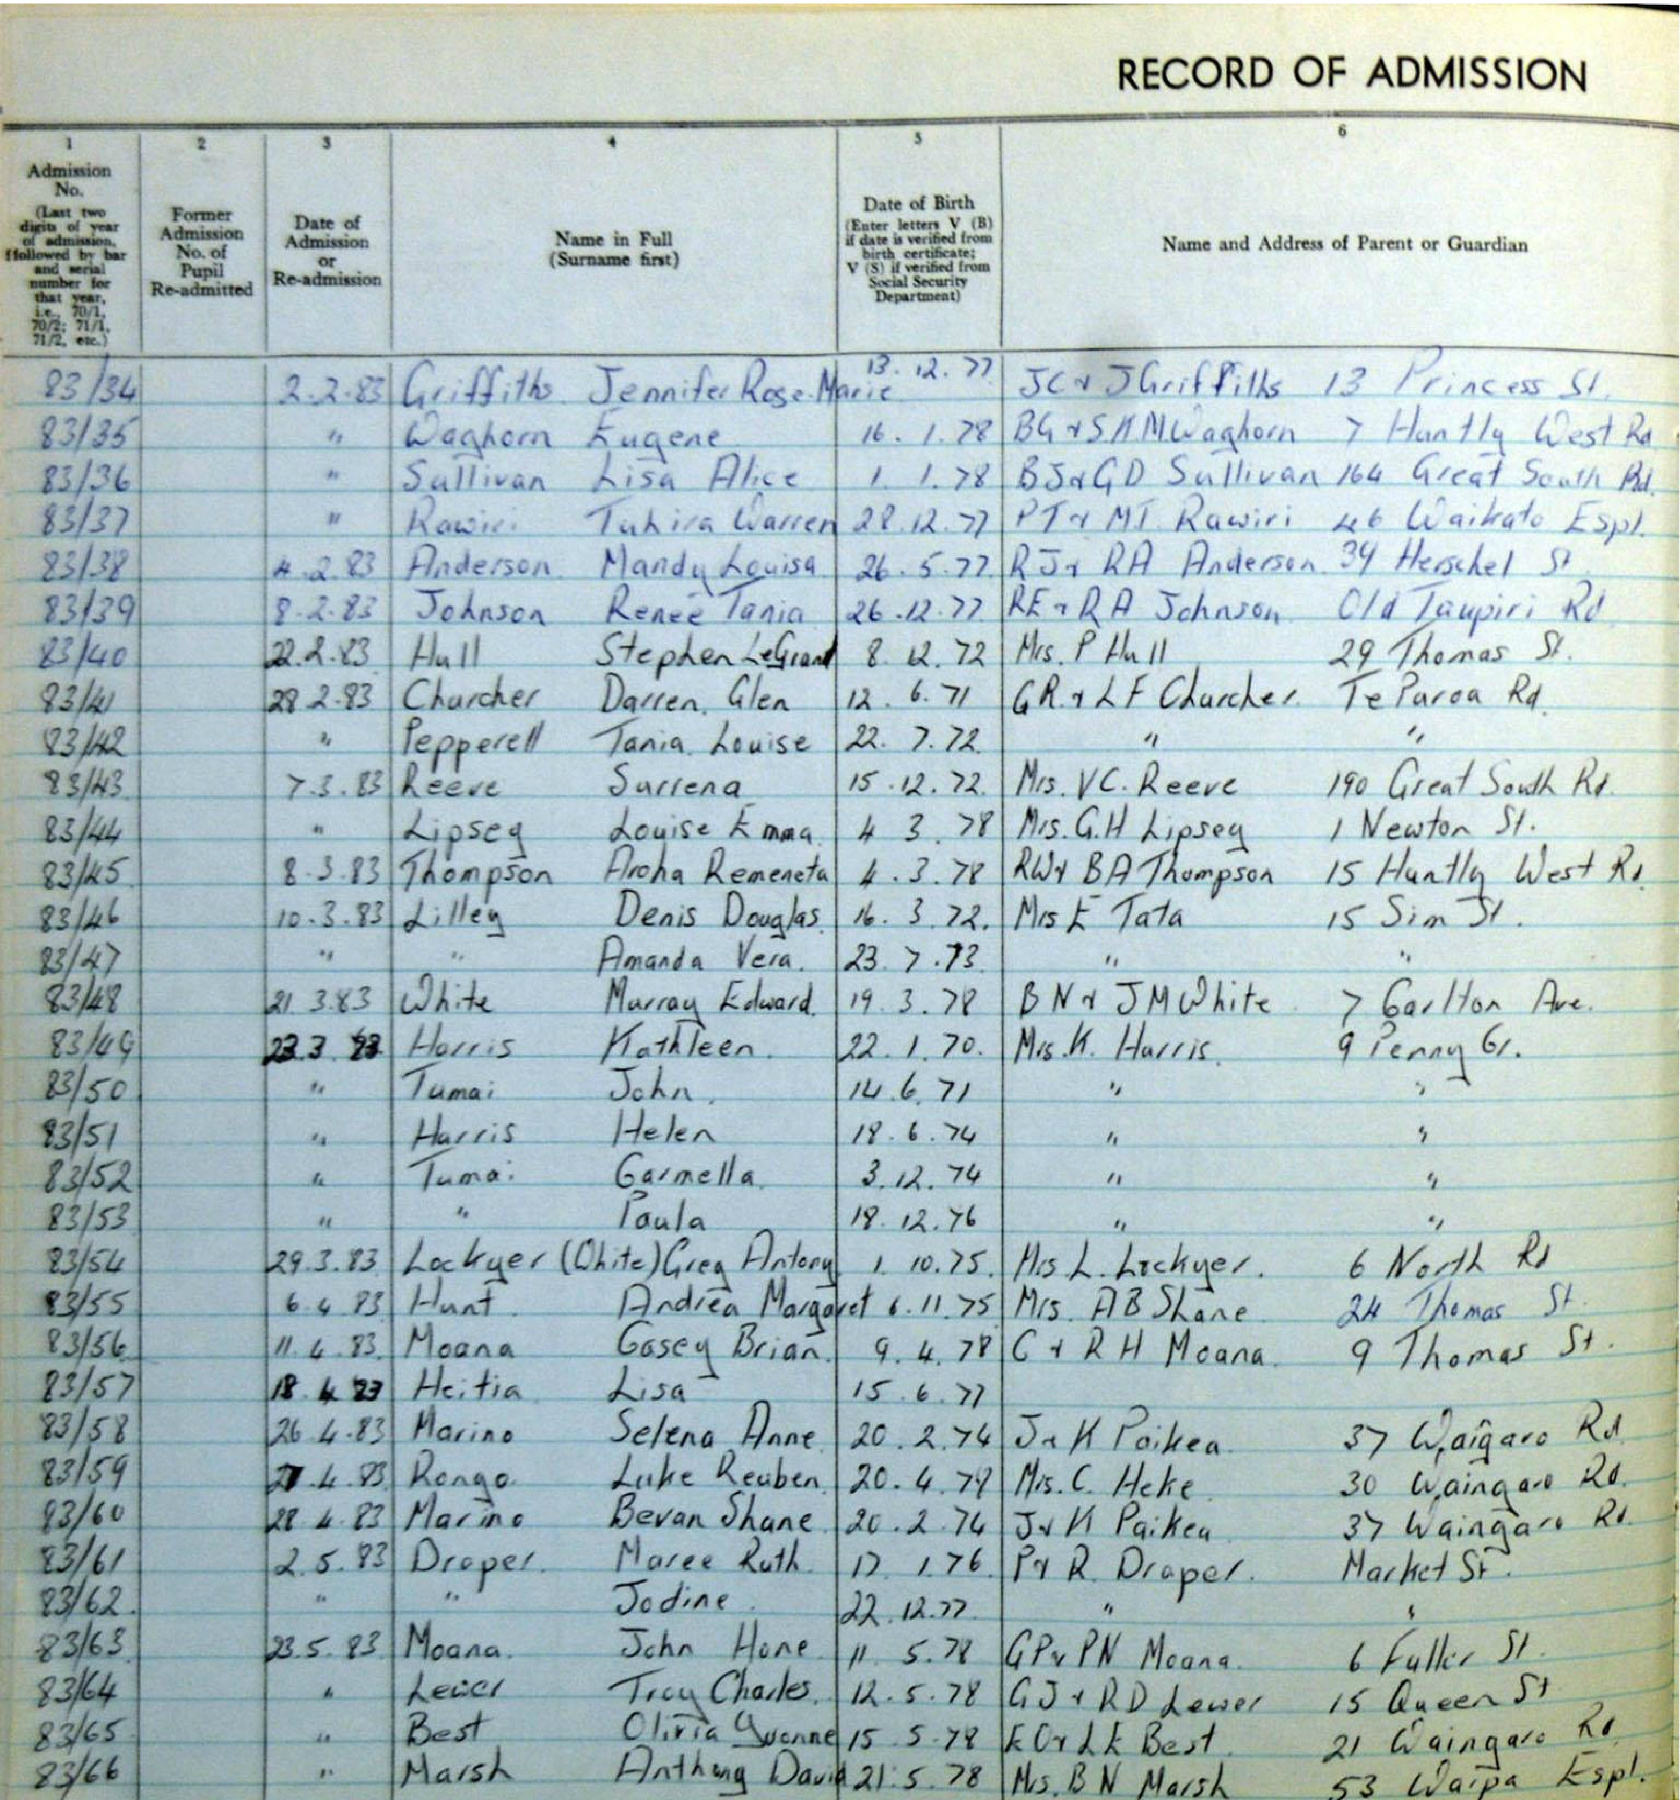 RECORD OF ADMISSION
1 2 3 4 5 6
Admission No. (Last two digits of year of admission, followed by bar and serial number for that year, i.e., 70/1, 70/2; 71/1, 71/2, etc.)
Former Admission No. of Pupil Re-admitted
Date of Admission or Re-admission
Name in Full (Surname first)
Date of Birth (Enter letters V (B) if date is verified from birth certificate; V (S) if verified from Social Security Department)
Name and Address of Parent or Guardian
83/34 2.2.83 Griffiths Jennifer Rose-Marie 13.12.77 JC & J Griffiths 13 Princess St.
83/35 " Waghorn Eugene 16.1.78 BG & SKM Waghorn 7 Huntly West Rd
83/36 " Sullivan Lisa Alice 1.1.78 BJ & GD Sullivan 164 Great South Rd.
83/37 " Rawiri Tuhira Warren 28.12.77 PT & MT Rawiri 46 Waikato Espl.
83/38 4.2.83 Anderson Mandy Louisa 26.5.77 RJ & RA Anderson 34 Herschel St
83/39 8.2.83 Johnson Renee Tania 26.12.77 RE & RA Johnson Old Taupiri Rd
83/40 22.2.83 Hull Stephen LeGrand 8.12.72 Mrs. P Hull 29 Thomas St.
83/41 28.2.83 Churcher Darren Glen 12.6.71 GR. & LF Churcher Te Paroa Rd.
83/42 " Pepperell Tania Louise 22.7.72 " "
83/43 7.3.83 Reeve Surrena 15.12.72 Mrs. VC. Reeve 190 Great South Rd.
83/44 " Lipsey Louise Emma 4 3.78 Mrs. G.H Lipsey 1 Newton St.
83/45 8.3.83 Thompson Aroha Remeneta 4.3.78 RW & BA Thompson 15 Huntly West Rd
83/46 10.3.83 Lilley Denis Douglas 16.3.72. Mrs E Tata 15 Sim St.
83/47 " " Amanda Vera. 23.7.73 " "
83/48 21.3.83 White Murray Edward. 19.3.78 BN & JM White 7 Carlton Ave.
83/49 23.3.83 Harris Kathleen. 22.1.70. Mrs. K. Harris. 9 Penny Cr.
83/50 " Tumai John. 14.6.71 " "
83/51 " Harris Helen 18.6.74 " "
83/52 " Tumai Carmella. 3.12.74 " "
83/53 " " Paula 18.12.76 " "
83/54 29.3.83 Lockyer (White) Greg Antony 1.10.75. Mrs L. Lockyer. 6 North Rd
83/55 6.4.83 Hunt Andrea Margaret 6.11.75 Mrs. AB Shane 24 Thomas St.
83/56 11.4.83. Moana Casey Brian. 9.4.78 C & RH Moana 9 Thomas St.
83/57 18.4.83 Heitia Lisa 15.6.77
83/58 26.4.83 Marino Selena Anne 20.2.74 J & K Paikea 37 Waigaro Rd
83/59 27.4.83 Rongo Luke Reuben. 20.4.78 Mrs. C. Heke 30 Waingaro Rd.
83/60 28.4.83 Marino Bevan Shane 20.2.74 J & K Paikea 37 Waingaro Rd.
83/61 2.5.83 Draper. Maree Ruth 17.1.76 P & R. Draper. Market St.
83/62 " " Jodine 22.12.77 " "
83/63 23.5.83 Moana. John Hone 11.5.78 GP & PN Moana. 6 Fuller St.
83/64 " Lewer Troy Charles. 12.5.78 GJ & RD Lewer 15 Queen St
83/65 " Best Olivia Yvonne 15.5.78 EO & LE Best 21 Waingaro Rd
83/66 " Marsh Anthony David 21.5.78 Mrs. BN Marsh 53 Waipa Espl.